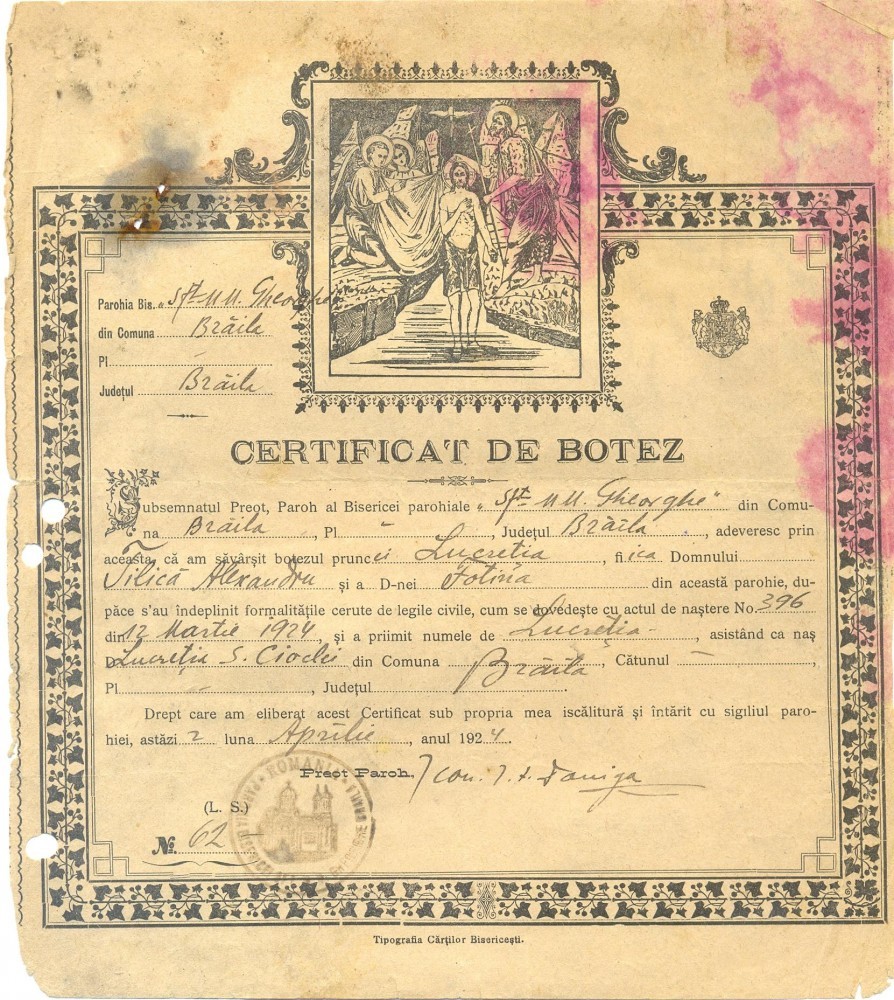 Parohia Bis. „Sft. M. M. Gheorghe
din Comuna Brăila
Pl. -
Județul Brăila
CERTIFICAT DE BOTEZ
Subsemnatul Preot, Paroh al Bisericei parohiale „Sft. M. M. Gheorghe" din Comu-
na Brăila, Pl. „, Județul Brăila, adeveresc prin
aceasta, că am săvârșit botezul pruncei Lucreția, fiica Domnului
Tilică Alexandru și a D-nei Fotina din această parohie, du-
păce s'au îndeplinit formalitățile cerute de legile civile, cum se dovedește cu actul de naștere No. 396
din 12 Martie 1924, și a priimit numele de Lucreția, asistând ca naș
D. Lucreția S. Ciodei din Comuna Brăila, Cătunul -,
Pl. -, Județul
Drept care am eliberat acest Certificat sub propria mea iscălitură și întărit cu sigiliul paro-
hiei, astăzi 2 luna Aprilie, anul 1924.
Preot Paroh, Icon.
ROMANIA
(L. S.)
№. 62
Tipografia Cărților Bisericești.